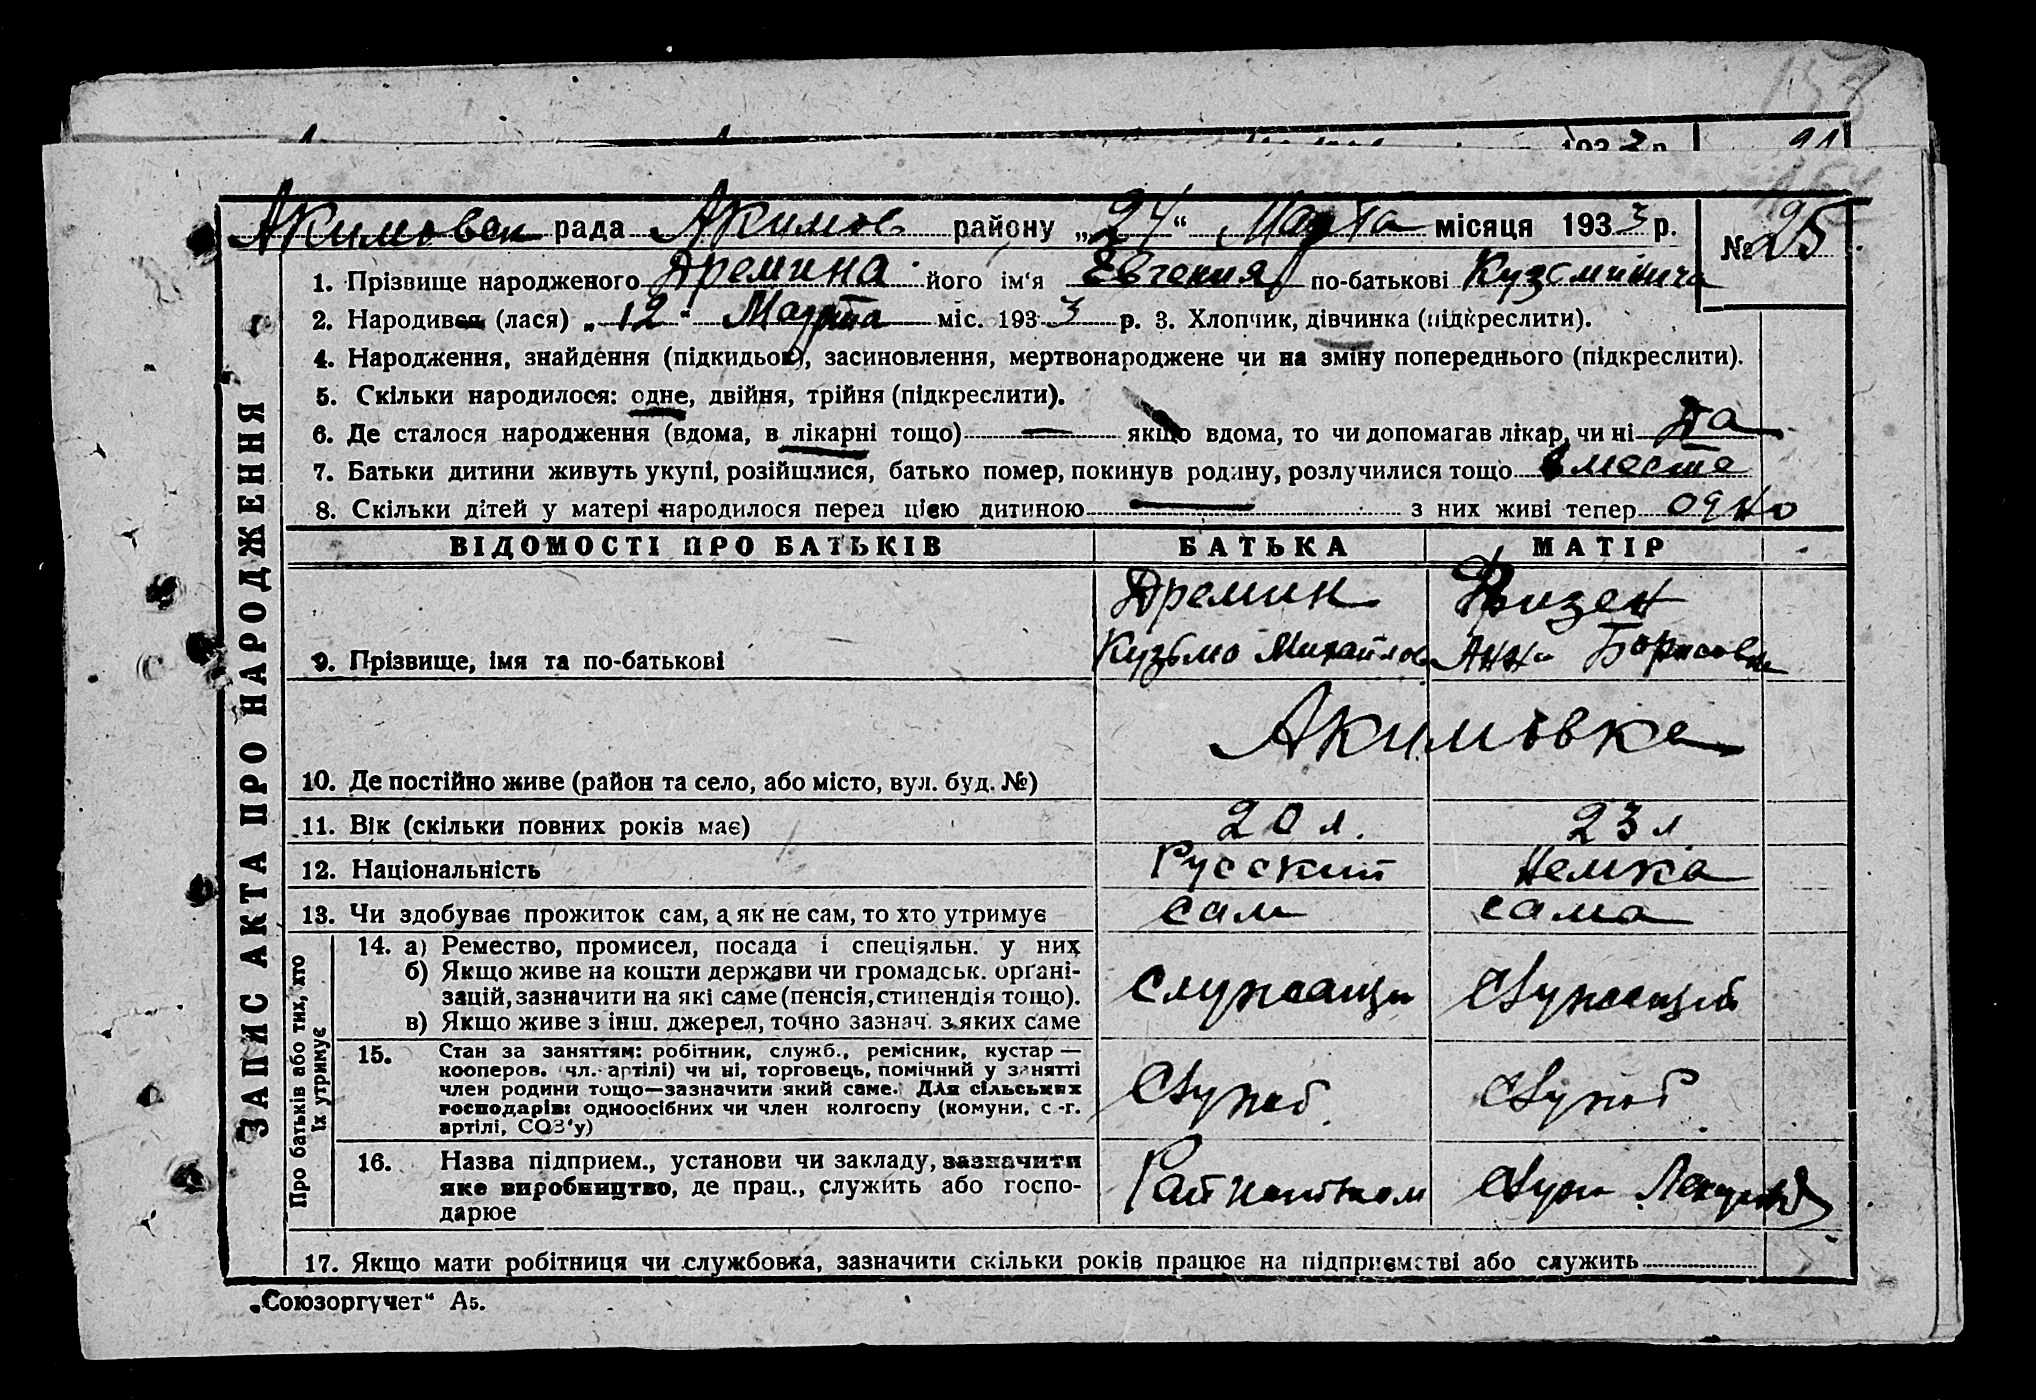 153
193 3 р. 24
154
Акимовск рада Акимов району „24“ Марта місяця 1933 р. № 25
1. Прізвище народженого Дремина його ім'я Евгения по-батькові Кузьминича
2. Народився (лася) „12“ Марта міс. 193 3 р. 3. Хлопчик, дівчинка (підкреслити).
4. Народження, знайдення (підкидьок), засиновлення, мертвонароджене чи на зміну попереднього (підкреслити).
5. Скільки народилося: одне, двійня, трійня (підкреслити).
6. Де сталося народження (вдома, в лікарні тощо) — якщо вдома, то чи допомагав лікар, чи ні да
7. Батьки дитини живуть укупі, розійшлися, батько помер, покинув родину, розлучилися тощо вместе
8. Скільки дітей у матері народилося перед цією дитиною — з них живі тепер одно
ВІДОМОСТІ ПРО БАТЬКІВ БАТЬКА МАТІР
9. Прізвище, імя та по-батькові Дремин Кузьмо Михайлов Визен Анна Борисовна
10. Де постійно живе (район та село, або місто, вул. буд. №) Акимовка
11. Вік (скільки повних років має) 20 л. 23 л
12. Національність Русский Немка
13. Чи здобуває прожиток сам, а як не сам, то хто утримує сам сама
14. а) Ремество, промисел, посада і спеціяльн. у них
б) Якщо живе на кошти держави чи громадськ. орґані-
зацій, зазначити на які саме (пенсія, стипендія тощо). служащи служащий
в) Якщо живе з інш. джерел, точно зазнач. з яких саме
15. Стан за заняттям: робітник, служб., ремісник, кустар —
кооперов. чл. артілі) чи ні, торговець, помічний у занятті
член родини тощо—зазначити який саме. Для сільських
господарів: одноосібних чи член колгоспу (комуни, с.-г.
артілі, СОЗ'у) Служб Служб
16. Назва підприєм., установи чи закладу, зазначити
яке виробництво, де прац., служить або госпо-
дарюе
17. Якщо мати робітниця чи службовка, зазначити скільки років працює на підприємстві або служить
„Союзоргучет“ А5.
ЗАПИС АКТА ПРО НАРОДЖЕННЯ
Про батьків або тих, хто
їх утримує